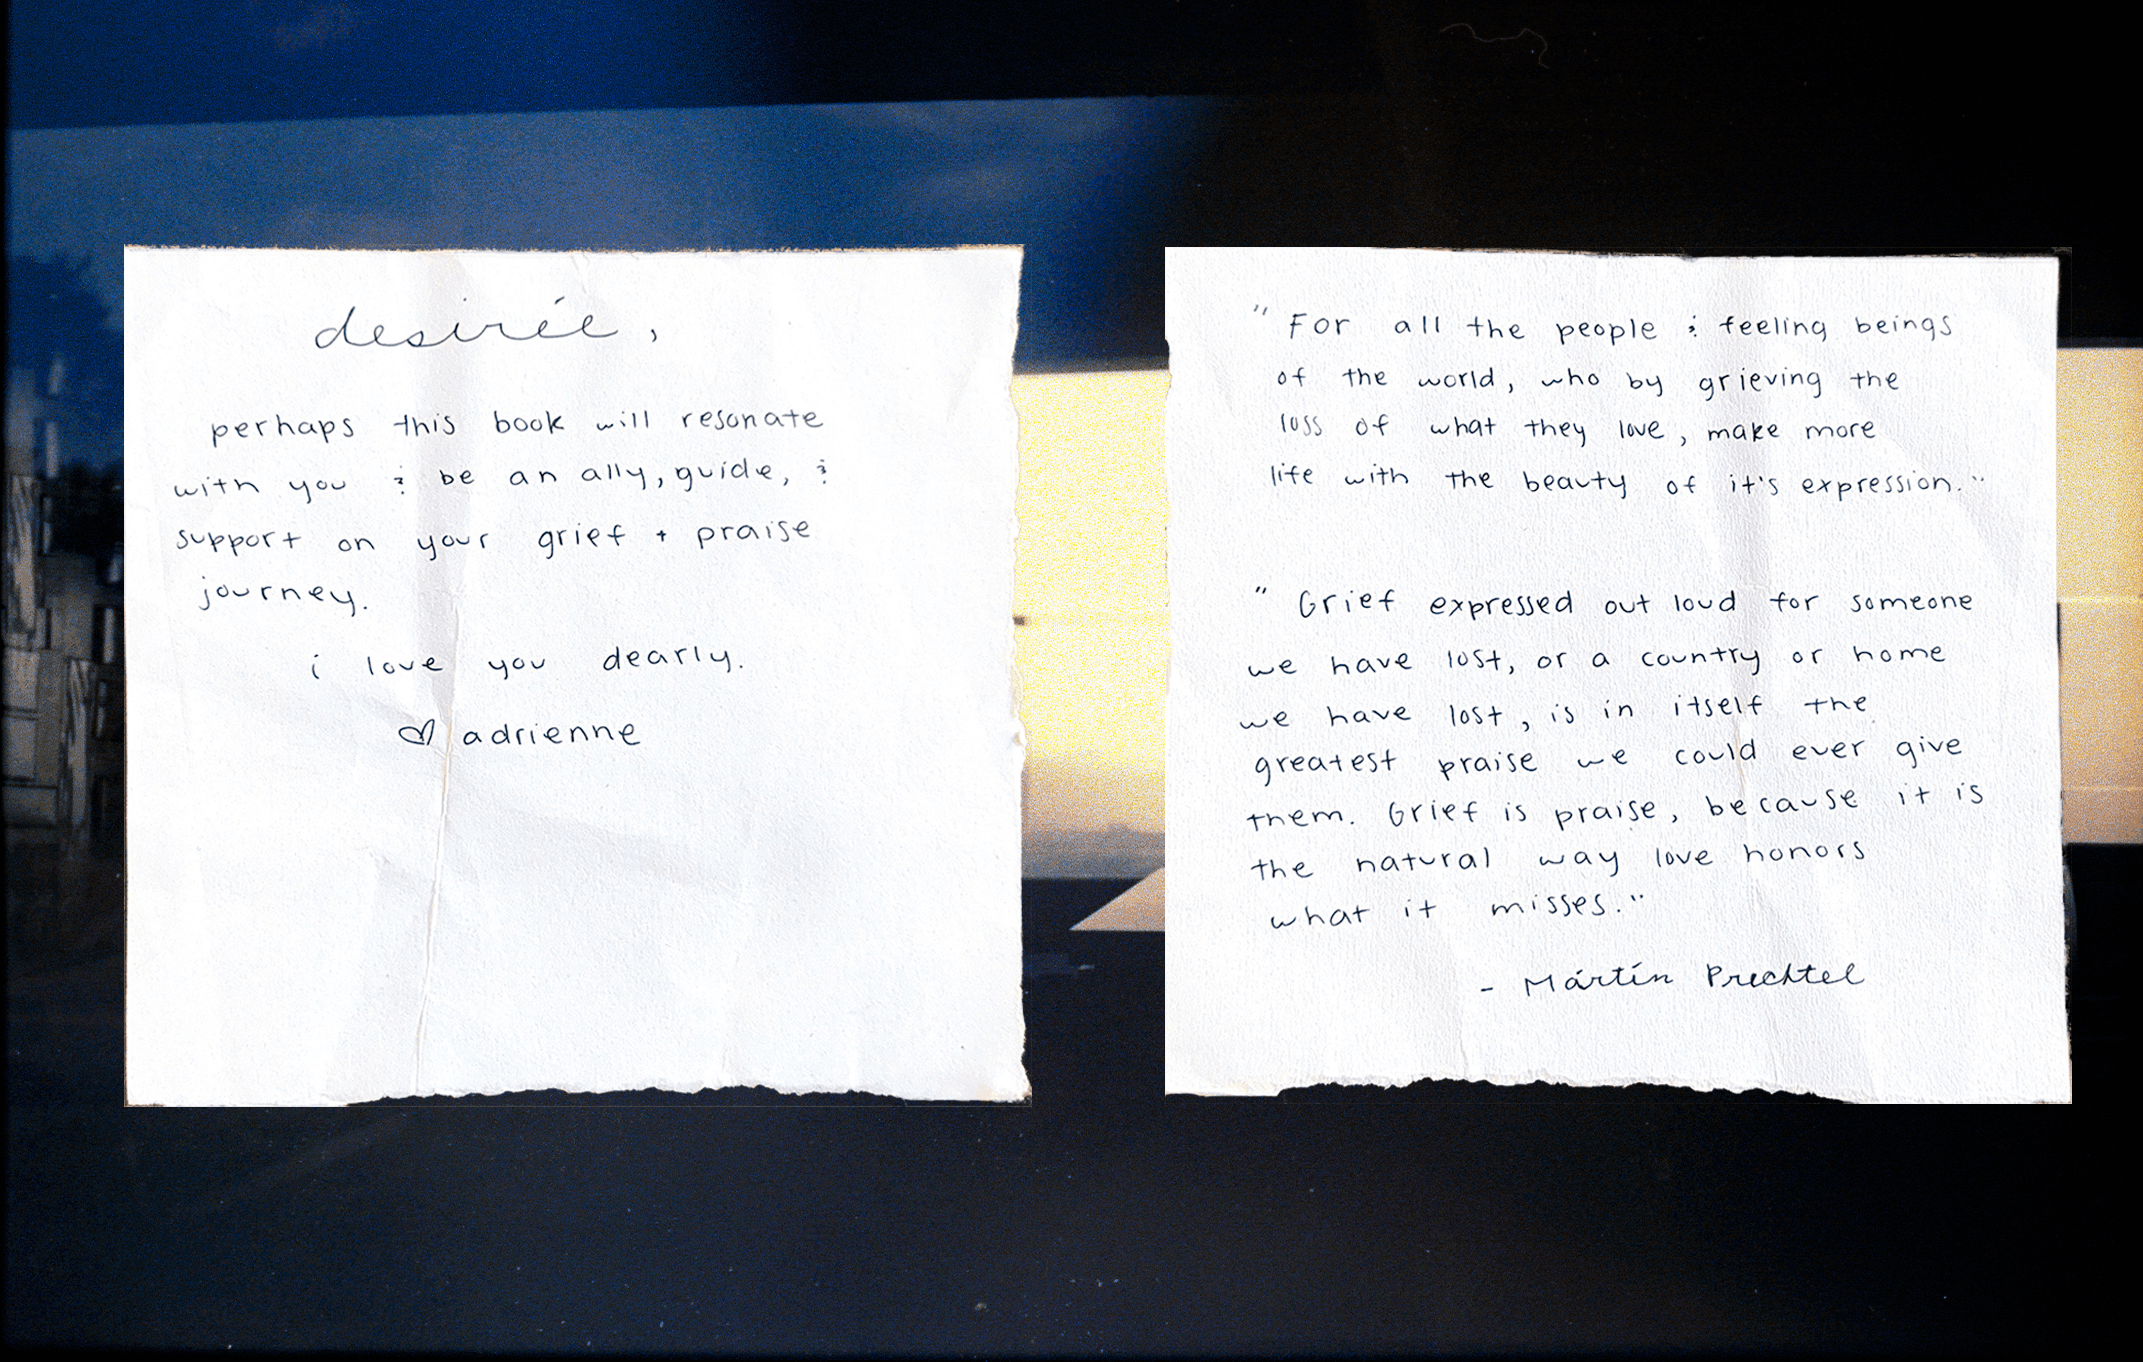 desirée,
perhaps this book will resonate
with you & be an ally, guide, &
support on your grief + praise
journey.
i love you dearly.
♡ adrienne
"For all the people & feeling beings
of the world, who by grieving the
loss of what they love, make more
life with the beauty of it's expression."
"Grief expressed out loud for someone
we have lost, or a country or home
we have lost, is in itself the
greatest praise we could ever give
them. Grief is praise, because it is
the natural way love honors
what it misses."
- Mártín Prechtel